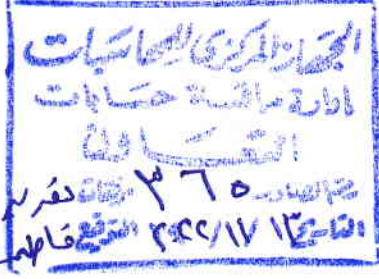 الجهاز المركزى للمحاسبات
إدارة مراقبة حسابات
التعاون
رقم الصادر ٣٦٥ مرفقات تقرير
التاريخ ١٣/٧/٢٠٢٢ التوقيع فاطمة